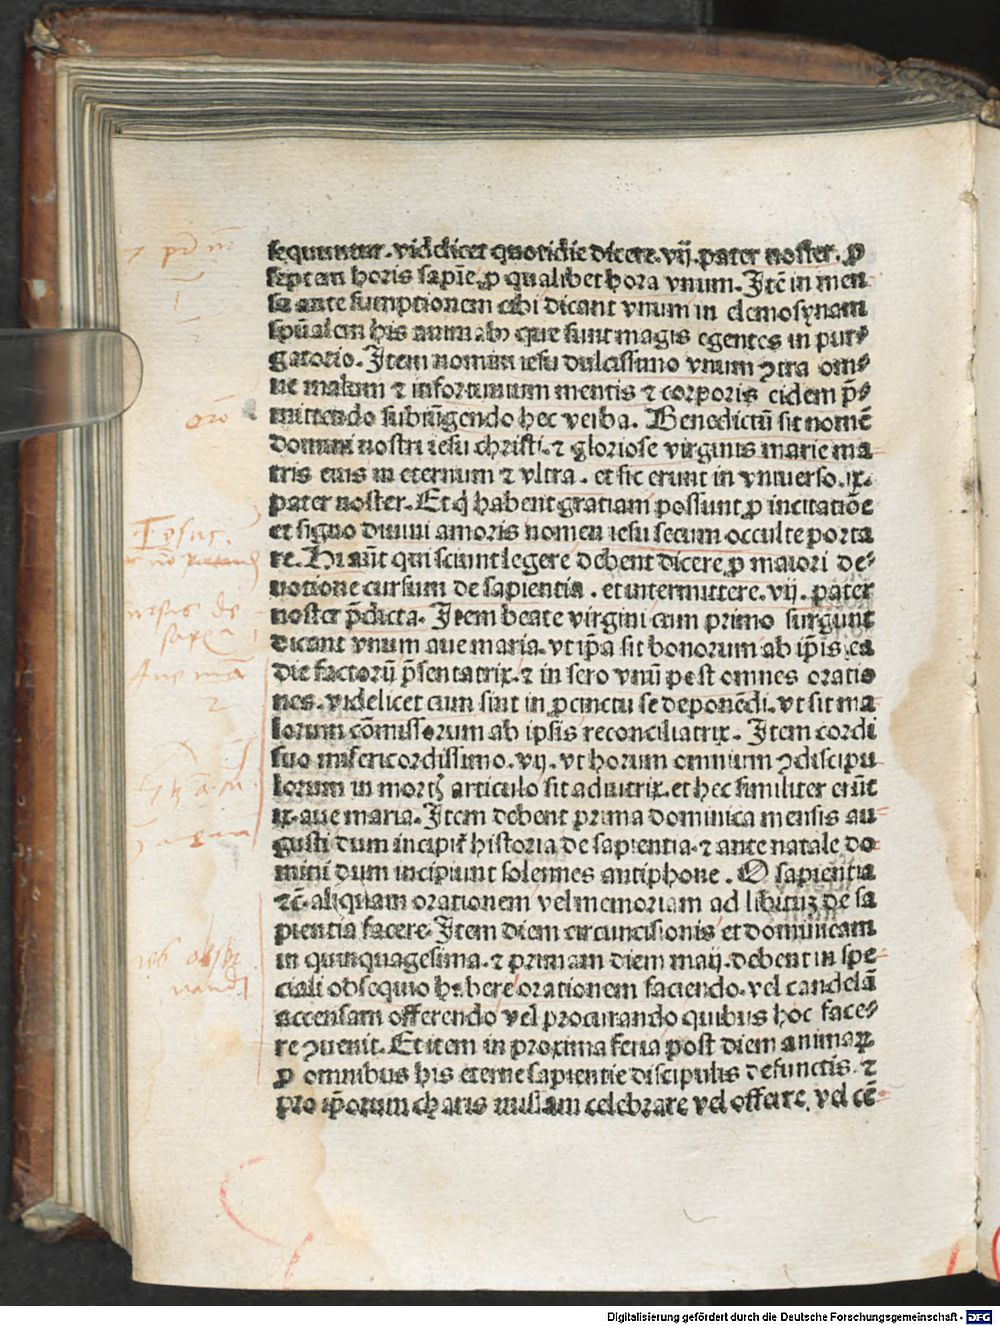 sequuntur. videlicet quotidie dicere. vij. pater noster. ꝑ
septem horis sapīe. ꝑ qualibet hora vnum. Itē in men⸗
sa ante sumptionem cibi dicant vnum in elemosynam
spūalem his animabꝰ que sunt magis egentes in pur⸗
gatorio. Item nomini iesu dulcissimo vnum ꝯtra om⸗
ne malum ⁊ infortunium mentis ⁊ corporis eidem p̄⸗
mittendo subiūgendo hec verba. Benedictū sit nomē
domini nostri iesu christi. ⁊ gloriose virginis marie ma
tris eius in eternum ⁊ vltra. et sic erunt in vniuerso. ix.
pater noster. Et q̇ habent gratiam possunt ꝑ incitatiōe
et signo diuini amoris nomen iesu secum occulte porta
re. Hi aūt qui sciunt legere debent dicere ꝑ maiori de⸗
uotione cursum de sapientia. et intermittere. vij. pater
noster p̄dicta. Item beate virgini cum primo surgunt
dicant vnum aue maria. vt ip̄a sit bonorum ab ip̄is ea
die factorū p̄sentatrix. ⁊ in sero vnū post omnes oratio
nes. videlicet cum sint in ꝓcinctu se deponēdi. vt sit ma
lorum cōmissorum ab ipsis reconciliatrix. Item cordi
suo misericordissimo. vij. vt horum omnium ꝯdiscipu
lorum in mortꝭ articulo sit adiutrix. et hec similiter erūt
ix. aue maria. Item debent prima dominica mensis au⸗
gusti dum incipit̄ historia de sapientia. ⁊ ante natale do
mini dum incipiunt solennes antiphone. O sapientia
⁊c̄. aliquam orationem vel memoriam ad libitūꝫ de sa
pientia facere. Item diem circuncisionis et dominicam
in quinquagesima. ⁊ primam diem maij. debent in spe⸗
ciali obsequio habere orationem faciendo. vel candelā
accensam offerendo vel procurando quibus hoc face⸗
re ꝯuenit. Et item in proxima feria post diem animaꝝ
ꝑ omnibus his eterne sapientie discipulis defunctis. ⁊
pro ip̄orum charis missam celebrare vel offerre. vel cē⸗
orō
Iesus
Aue mā
2
Digitalisierung gefördert durch die Deutsche Forschungsgemeinschaft - DFG